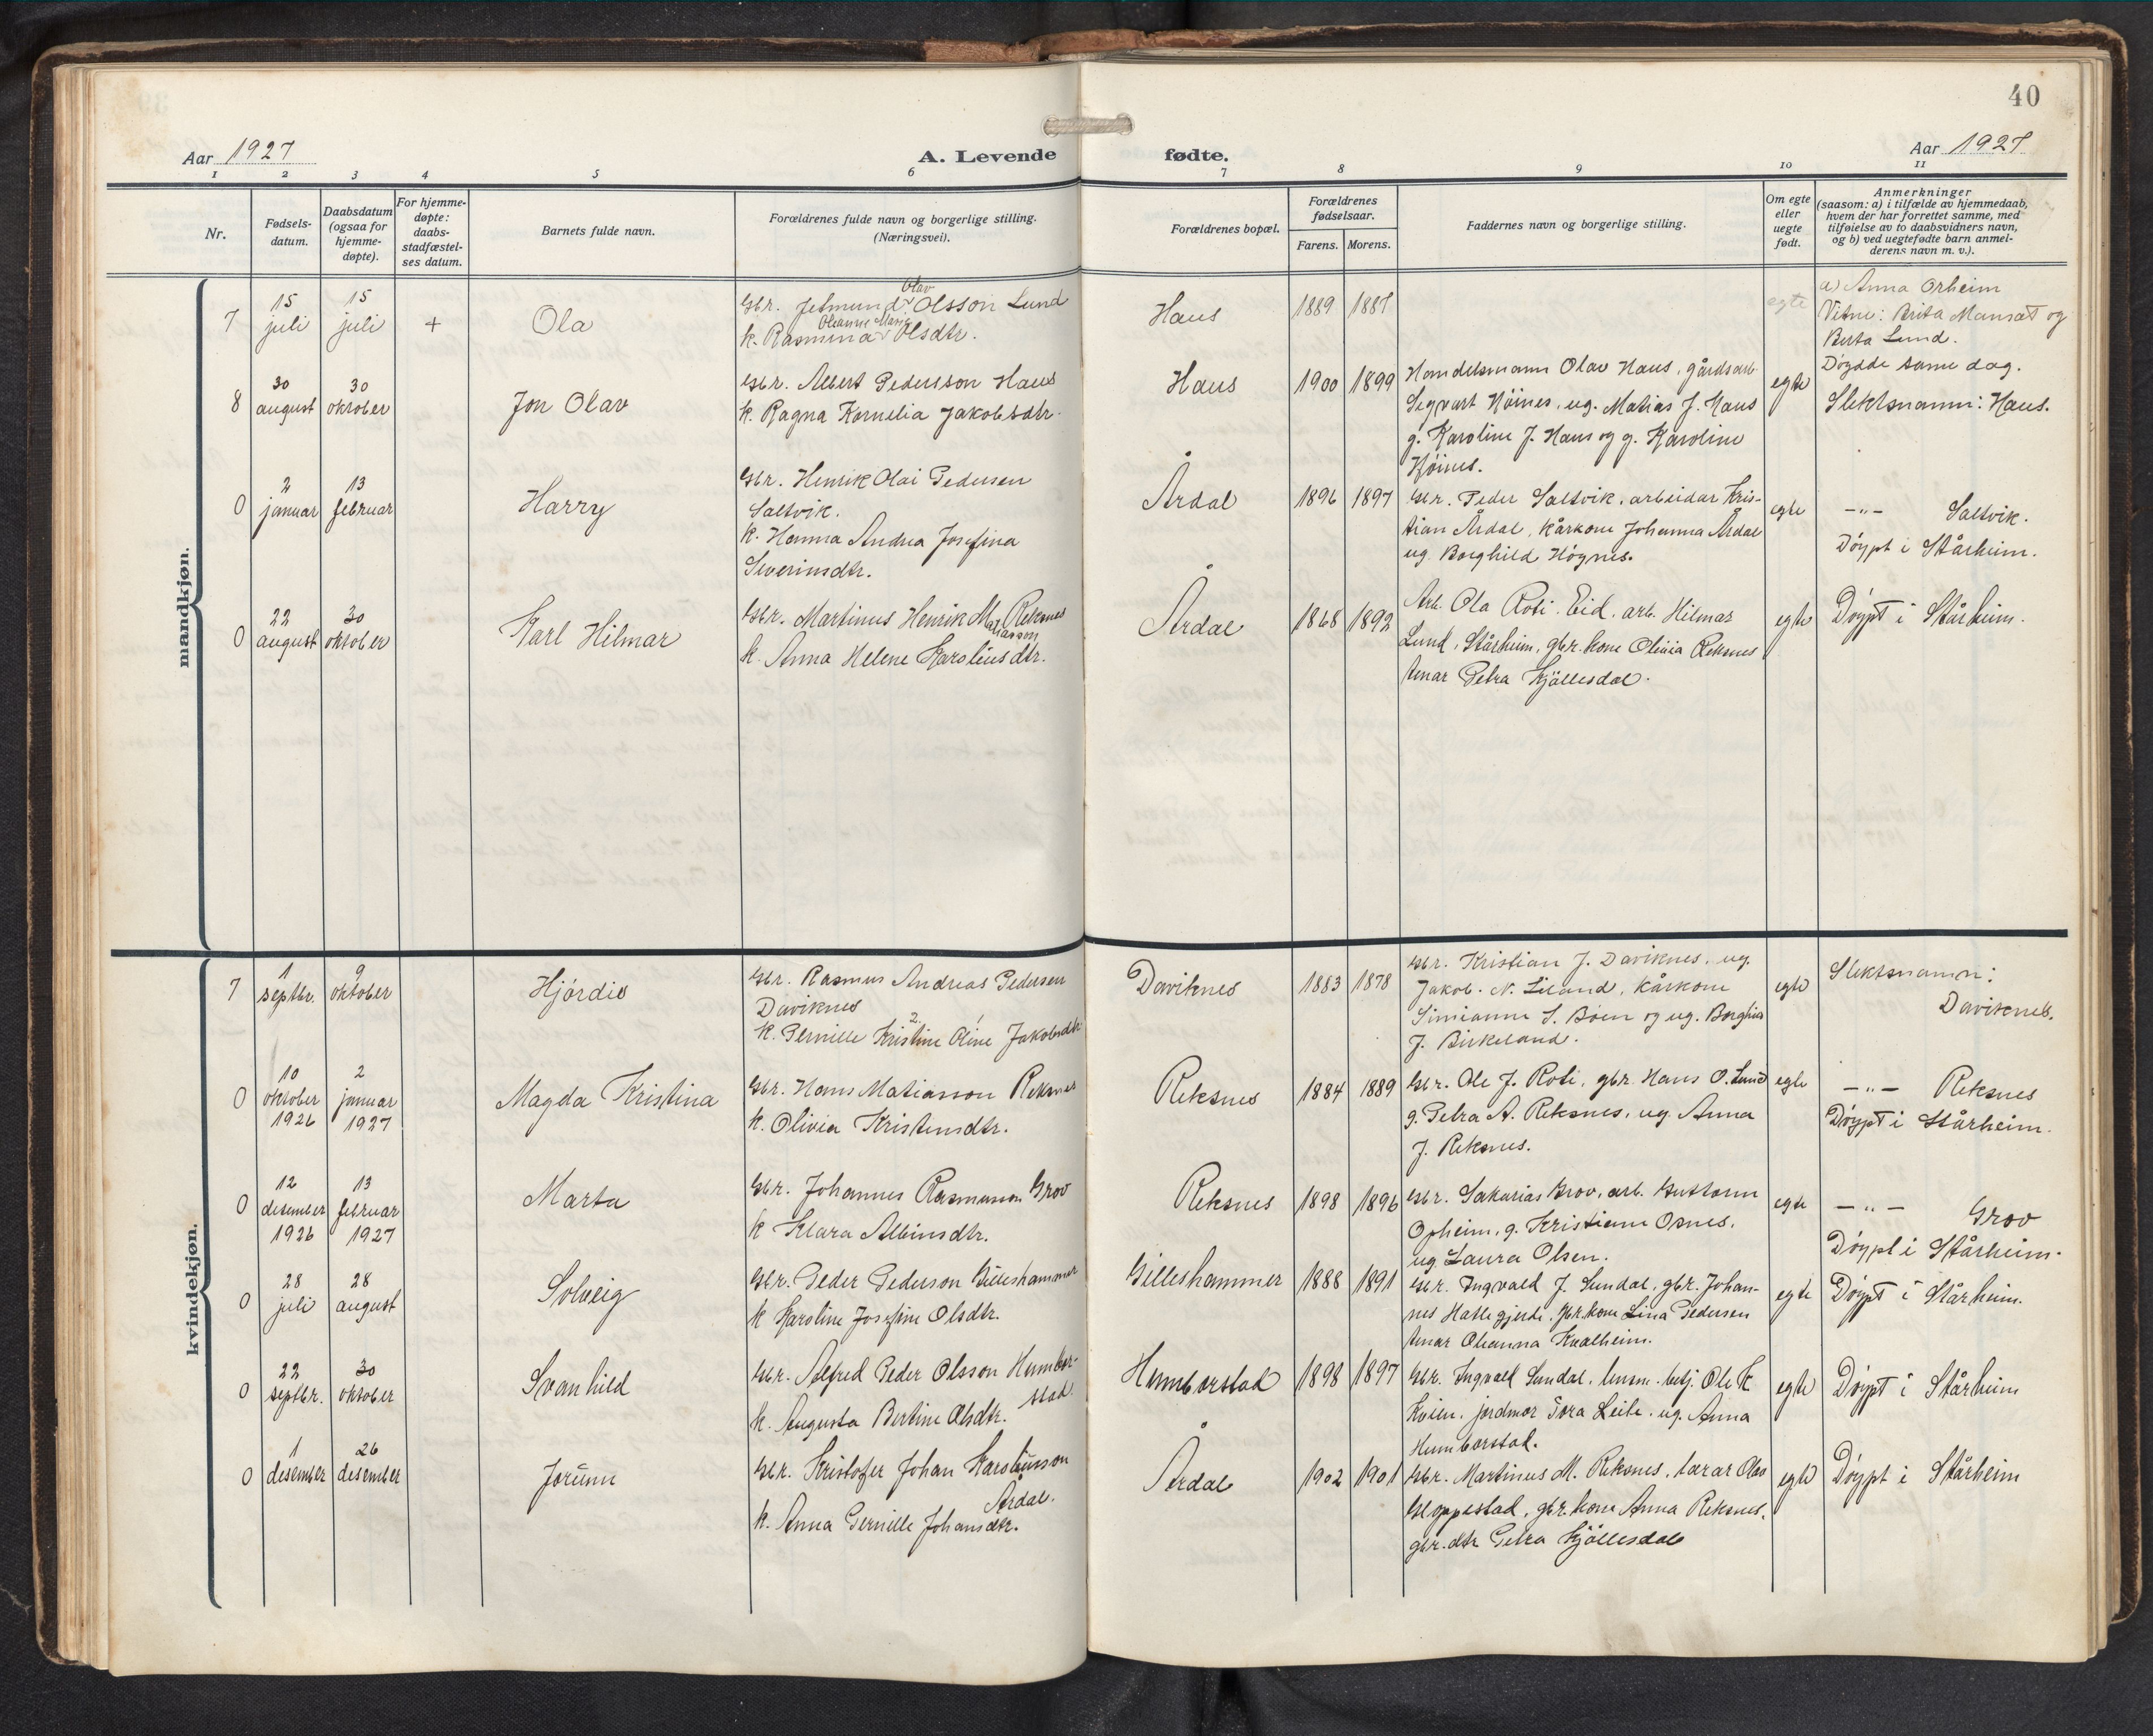 40
Aar 1927
A. Levende
fødte.
Aar 1927
1 2 3 4 5 6 7 8 9 10 11
Nr.
Fødsels-
datum.
Daabsdatum
(ogsaa for
hjemme-
døpte).
For hjemme-
døpte:
daabs-
stadfæstel-
ses datum.
Barnets fulde navn.
Forældrenes fulde navn og borgerlige stilling.
(Næringsvei).
Forældrenes bopæl.
Forældrenes
fødselsaar.
Farens. Morens.
Faddernes navn og borgerlige stilling.
Om egte
eller
uegte
født.
Anmerkninger
(saasom: a) i tilfælde av hjemmedaab,
hvem der har forrettet samme, med
tilføielse av to daabsvidners navn,
og b) ved uegtefødte barn anmel-
derens navn m. v.).
mandkjøn.
7
15
juli
15
juli
+
Ola
Olav
Gbr. Jetmund Olsson Lund
Oleanne Marie
k. Rasmina Olsdtr.
Haus
1889 1887
egte
a) Anna Orheim
Vitne: Brita Mansæt og
Berta Lund.
Døydde same dag.
8
30
august
30
oktober
Jon Olav
Gbr. Albert Pedersson Haus
k. Ragna Kornelia Jakobsdtr.
Haus
1900 1899
Handelsmann Olav Haus, gårdsarb.
Sigvart Höines, ug. Matias J. Haus
g. Karoline J. Haus og g. Karoline
Höines.
egte
Slektsnamn: Haus.
0
2
januar
13
februar
Harry
Gbr. Henrik Olai Pedersen
Saltvik.
k. Hanna Andrea Josefina
Severinsdtr.
Årdal
1896 1897
Gbr. Peder Saltvik, arbeidar Kris-
tian Årdal, kårkone Johanna Årdal
ug. Borghild Högnes.
egte
-"- Saltvik.
Döypt i Stårheim.
0
22
august
30
oktober
Karl Hilmar
Gbr. Martinus Henrik Matiasson Reksnes
k. Anna Helene Karoliusdtr.
Årdal
1868 1892
Arb. Ola Roti, Eid, arb. Hilmar
Lund, Stårheim, gbr.kone Olivia Reksnes
tenar Petra Kjöllesdal.
egte
Döypt i Stårheim.
kvindekjøn.
7
1
septbr.
9
oktober
Hjördis
Gbr. Rasmus Andreas Pedersen
Daviknes
2. 1
k. Pernille Kristine Oline Jakobsdtr
Daviknes
1883 1878
Gbr. Kristian J. Daviknes, ug.
Jakob N. Liland, kårkone
Simianne S. Böen og ug. Borghild
J. Birkeland.
egte
Slektsnamn:
Daviknes.
0
10
oktober
1926
2
januar
1927
Magda Kristina
Gbr. Hans Matiasson Reksnes
k. Olivia Kristensdtr.
Reksnes
1884 1889
Gbr. Ole J. Roti, gbr. Hans O. Lund
g. Petra A. Reksnes, ug. Anna
J. Reksnes.
egte
-"- Reksnes
Döypt i Stårheim.
0
12
desember
1926
13
februar
1927
Marta
Gbr. Johannes Rasmusson Grov
k Klara Albinsdtr.
Reksnes
1898 1896
Gbr. Sakarias Grov, arb. Guttorm
Opheim, g. Kristiane Osnes,
ug. Laura Olsen.
egte
-"- Grov
Döypt i Stårheim.
0
28
juli
28
august
Solveig
Gbr. Peder Pederson Gilleshammer
k Karoline Josefine Olsdtr.
Gilleshammer
1888 1891
Gbr. Ingvald J. Sundal, gbr. Johan-
nes Hatlegjerde, gbr.kone Lina Pedersen
tenar Oleanna Kvalheim.
egte
Döypt i Stårheim.
0
22
septbr.
30
oktober
Svanhild
Gbr. Alfred Peder Olsson Humbor-
stad
k. Augusta Bertine Olsdtr.
Humborstad
1898 1897
Gbr. Ingvald Sundal, lensm.betj. Ole K
Kvien, jordmor Tora Leite, ug. Anna
Humborstad.
egte
Döypt i Stårheim
0
1
desember
26
desember
Jorunn
Gbr. Kristofer Johan Karoliusson
Årdal.
k. Anna Pernille Johansdtr.
Årdal
1902 1901
Gbr. Martinus M. Reksnes, lærar Olav
Gloppestad, gbr.kone Anna Reksnes,
gbr.dtr Petra Kjöllesdal
egte
Döypt i Stårheim